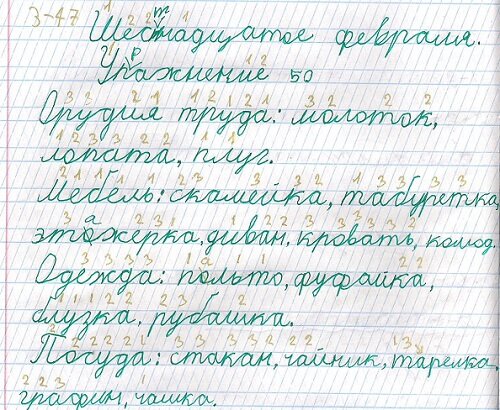 3-47
Шестнадцатое февраля.
Упражнение 50
Орудия труда: молоток,
лопата, плуг.
Мебель: скамейка, табуретка,
этажерка, диван, кровать, комод.
Одежда: польто, фуфайка,
блузка, рубашка.
Посуда: стакан, чайник, тарелка.
графин, чашка.